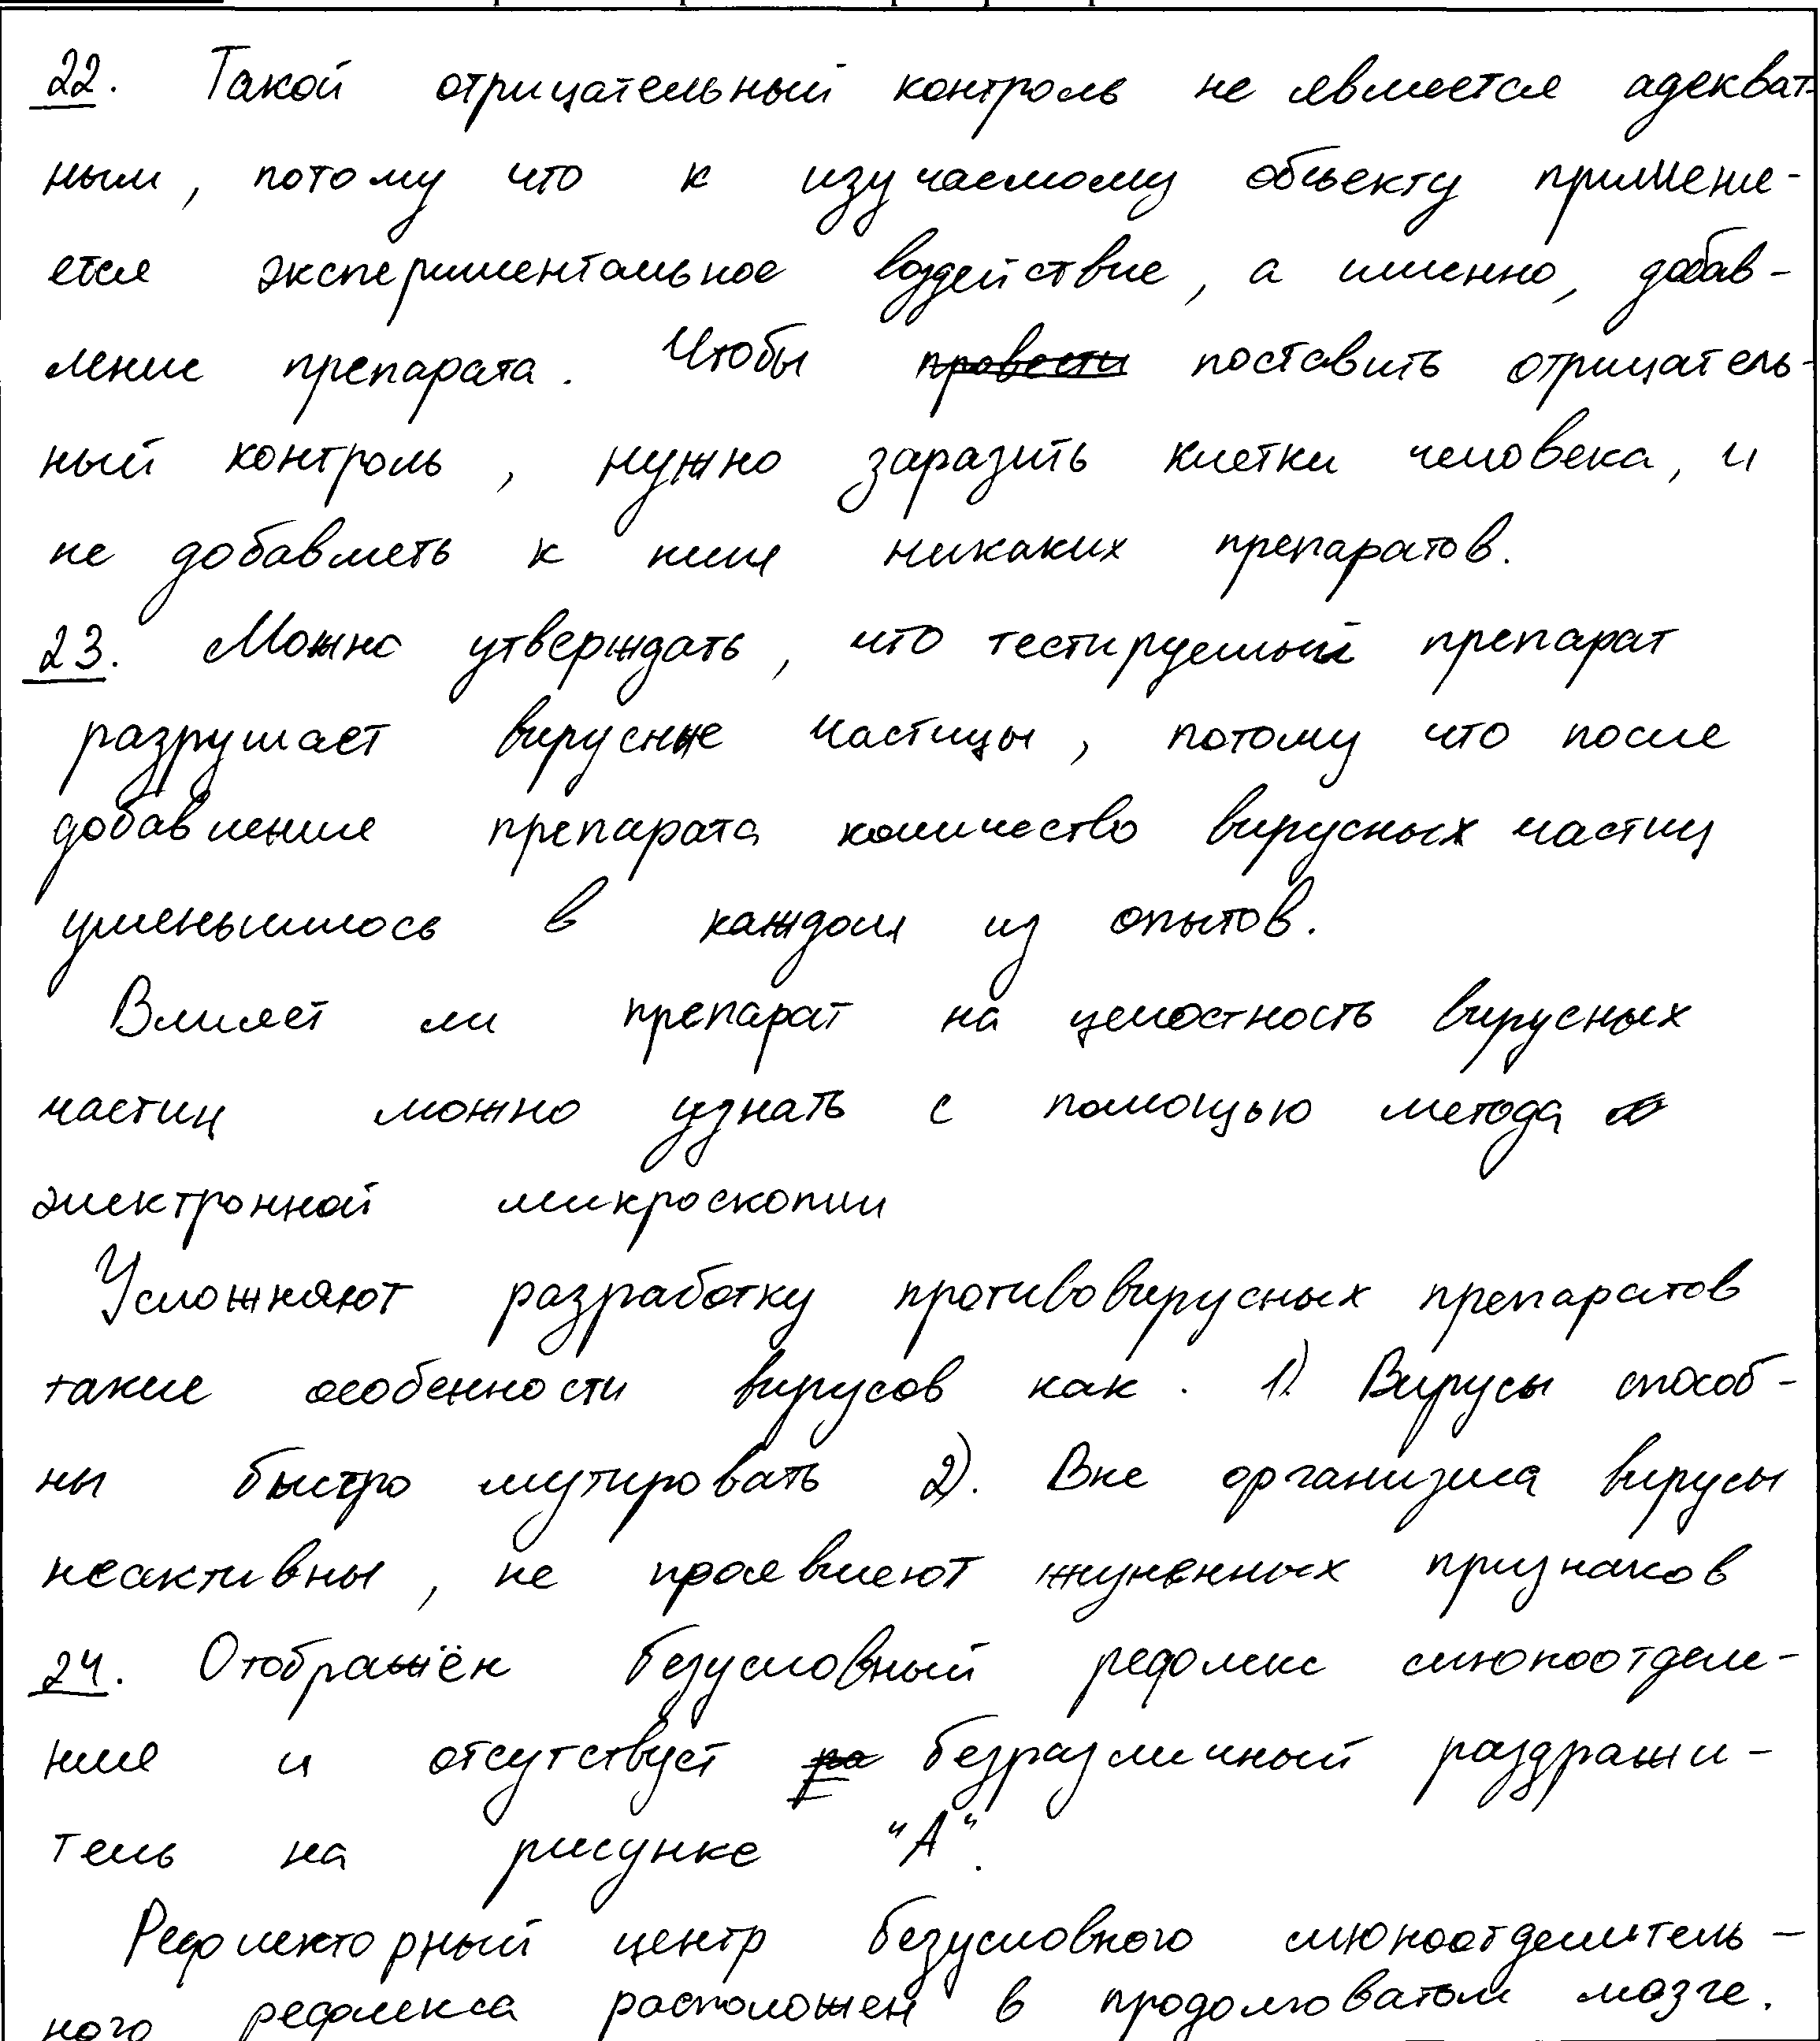 22. Такой отрицательный контроль не является адекват-
ным, потому что к изучаемому объекту применя-
ется экспериментальное воздействие, а именно, добав-
ление препарата. Чтобы провести поставить отрицатель-
ный контроль, нужно заразить клетки человека, и
не добавлять к ним никаких препаратов.
23. Можно утверждать, что тестируемый препарат
разрушает вирусные частицы, потому что после
добавления препарата количество вирусных частиц
уменьшилось в каждом из опытов.
Влияет ли препарат на целостность вирусных
частиц можно узнать с помощью метода
электронной микроскопии
Усложняют разработку противовирусных препаратов
такие особенности вирусов как. 1). Вирусы способ-
ны быстро мутировать 2). Вне организма вирусы
неактивны, не проявляют жизненных признаков
24. Отображён безусловный рефлекс слюноотделе-
ния и отсутствует ра безразличный раздражи-
тель на рисунке "А".
Рефлекторный центр безусловного слюноотделитель-
ного рефлекса расположен в продолговатом мозге.